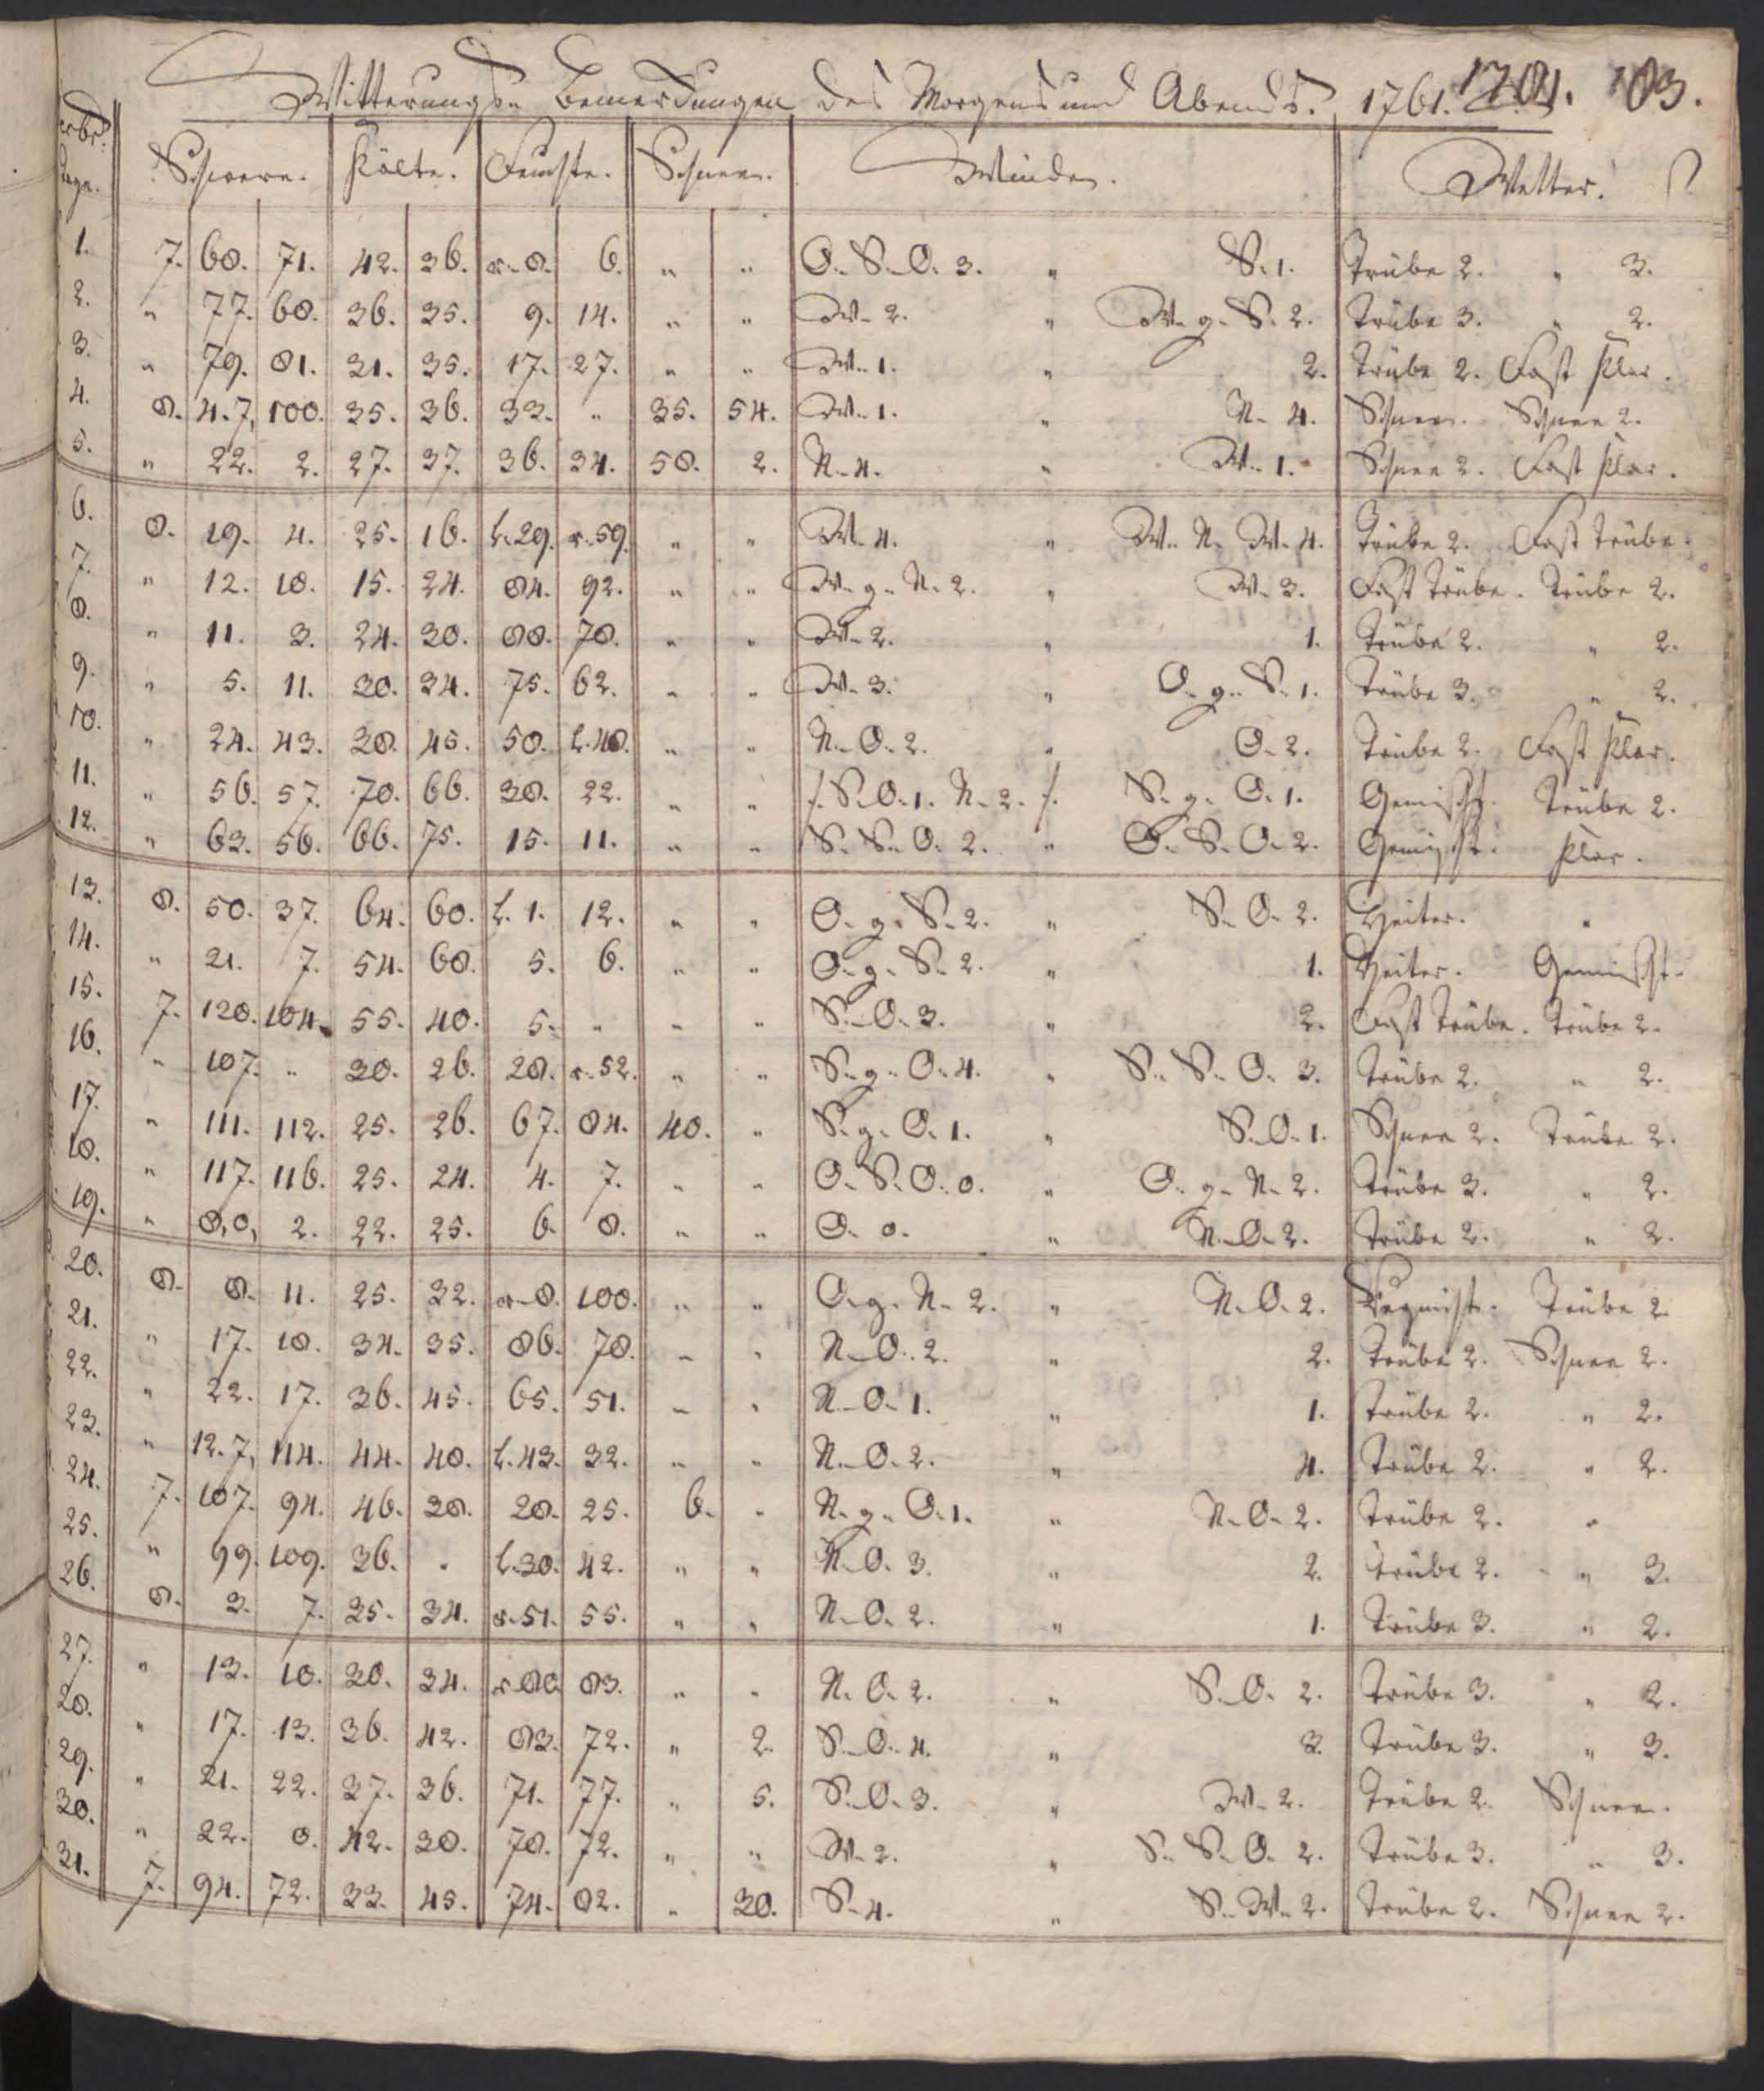 Witterungs- Bemerckungen des Morgens und Abends. 1761. 103.
Tage. Schwere. Kälte. Feuchte. Schnee. Winde. Wetter.
1. 7. 68. 71. 42. 36. r. 8. 6. " " O. S. O. 3. " S. 1. Trübe 2. " 3.
2. " 77. 68. 36. 35. 9. 14. " " W. 2. " W. g. S. 2. Trübe 3. " 2.
3. " 79. 81. 31. 35. 17. 27. " " W. 1. " 2. Trübe 2. Fast klar.
4. 8. 4. 7, 100. 35. 36. 33. " 35. 54. W. 1. " N. 4. Schnee. Schnee 2.
5. " 22. 2. 27. 37. 36. 34. 58. 2. N. 4. " W. 1. Schnee 2. Fast klar.
6. 8. 19. 4. 25. 16. l. 29. r. 59. " " W. 4. " W. N. W. 4. Trübe 2. Fast trübe.
7. " 12. 18. 15. 24. 84. 92. " " W. g. N. 2. " W. 3. Fast trübe. Trübe 2.
8. " 11. 3. 24. 30. 88. 78. " " W. 2. " 1. Trübe 2. " 2.
9. " 5. 11. 30. 34. 75. 62. " " W. 3. " O. g. S. 1. Trübe 3. " 2.
10. " 24. 43. 38. 45. 50. l. 48. " " N. O. 2. " O. 2. Trübe 2. Fast klar.
11. " 56. 57. 70. 66. 38. 22. " " /. S. O. 1. N. 2. /. S. g. O. 1. Gemischt. Trübe 2.
12. " 63. 56. 66. 75. 15. 11. " " S. S. O. 2. " O. S. O. 2. Gemischt. klar.
13. 8. 50. 37. 64. 60. l. 1. 12. " " O. g. S. 2. " S. O. 2. Heiter. "
14. " 21. 7. 54. 68. 5. 6. " " O. g. S. 2. " 1. Heiter. Gemischt.
15. 7. 120. 104. 55. 40. 5. " " " S. O. 3. " 2. Fast trübe. Trübe 2.
16. " 107. " 30. 26. 28. r. 52. " " S. g. O. 4. " S. S. O. 3. Trübe 2. " 2.
17. " 111. 112. 25. 26. 67. 84. 40. " S. g. O. 1. " S. O. 1. Schnee 2. Trübe 2.
18. " 117. 116. 25. 24. 4. 7. " " O. S. O. 0. " O. g. N. 2. Trübe 3. " 2.
19. " 8, 0, 2. 22. 25. 6. 8. " " O. 0. " N. O. 2. Trübe 2. " 2.
20. 8. 8. 11. 25. 32. r. 8. 100. " " O. g. N. 2. " N. O. 2. Trübe 2.
21. " 17. 18. 34. 35. 86. 78. " " N. O. 2. " 2. Trübe 2. Schnee 2.
22. " 22. 17. 36. 45. 65. 51. " " N. O. 1. " 1. Trübe 2. " 2.
23. " 12. 7, 114. 44. 40. l. 43. 32. " " N. O. 2. " 4. Trübe 2. " 2.
24. 7. 107. 94. 46. 38. 28. 25. 6. " N. g. O. 1. " N. O. 2. Trübe 2. "
25. " 99. 109. 36. " l. 30. 42. " " N. O. 3. " 2. Trübe 2. " 3.
26. 8. 3. 7. 35. 34. r. 51. 55. " " N. O. 2. " 1. Trübe 3. " 2.
27. " 13. 10. 30. 34. r. 83. " " N. O. 2. " S. O. 2. Trübe 3. " 2.
28. " 17. 13. 36. 42. 83. 72. " 2. S. O. 4. " 3. Trübe 3. " 3.
29. " 21. 22. 37. 36. 71. 77. " 5. S. O. 3. " W. 2. Trübe 2. Schnee.
30. " 22. 0. 42. 30. 78. 72. " " W. 2. " S. S. O. 2. Trübe 3. " 3.
31. 7. 94. 72. 33. 45. 74. 82. " 30. S. 4. " S. W. 2. Trübe 2. Schnee 2.